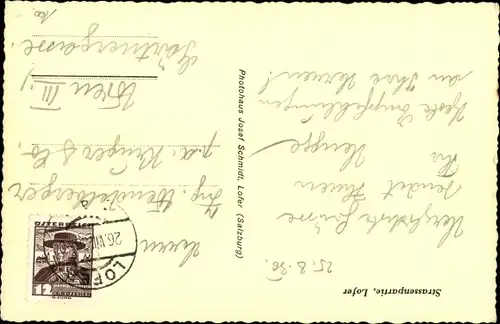 Strassenpartie, Lofer
25.8.36.
Herzlichste Grüsse
sendet Ihnen
Ihr
Beste Empfehlungen
an Ihre Herren!
Photohaus Josef Schmidt, Lofer (Salzburg)
Herrn
Ing.
p.a. Krüger & Co.
Wien III./
Gärtnergasse
ÖSTERREICH
12
GROSCHEN
LOFER